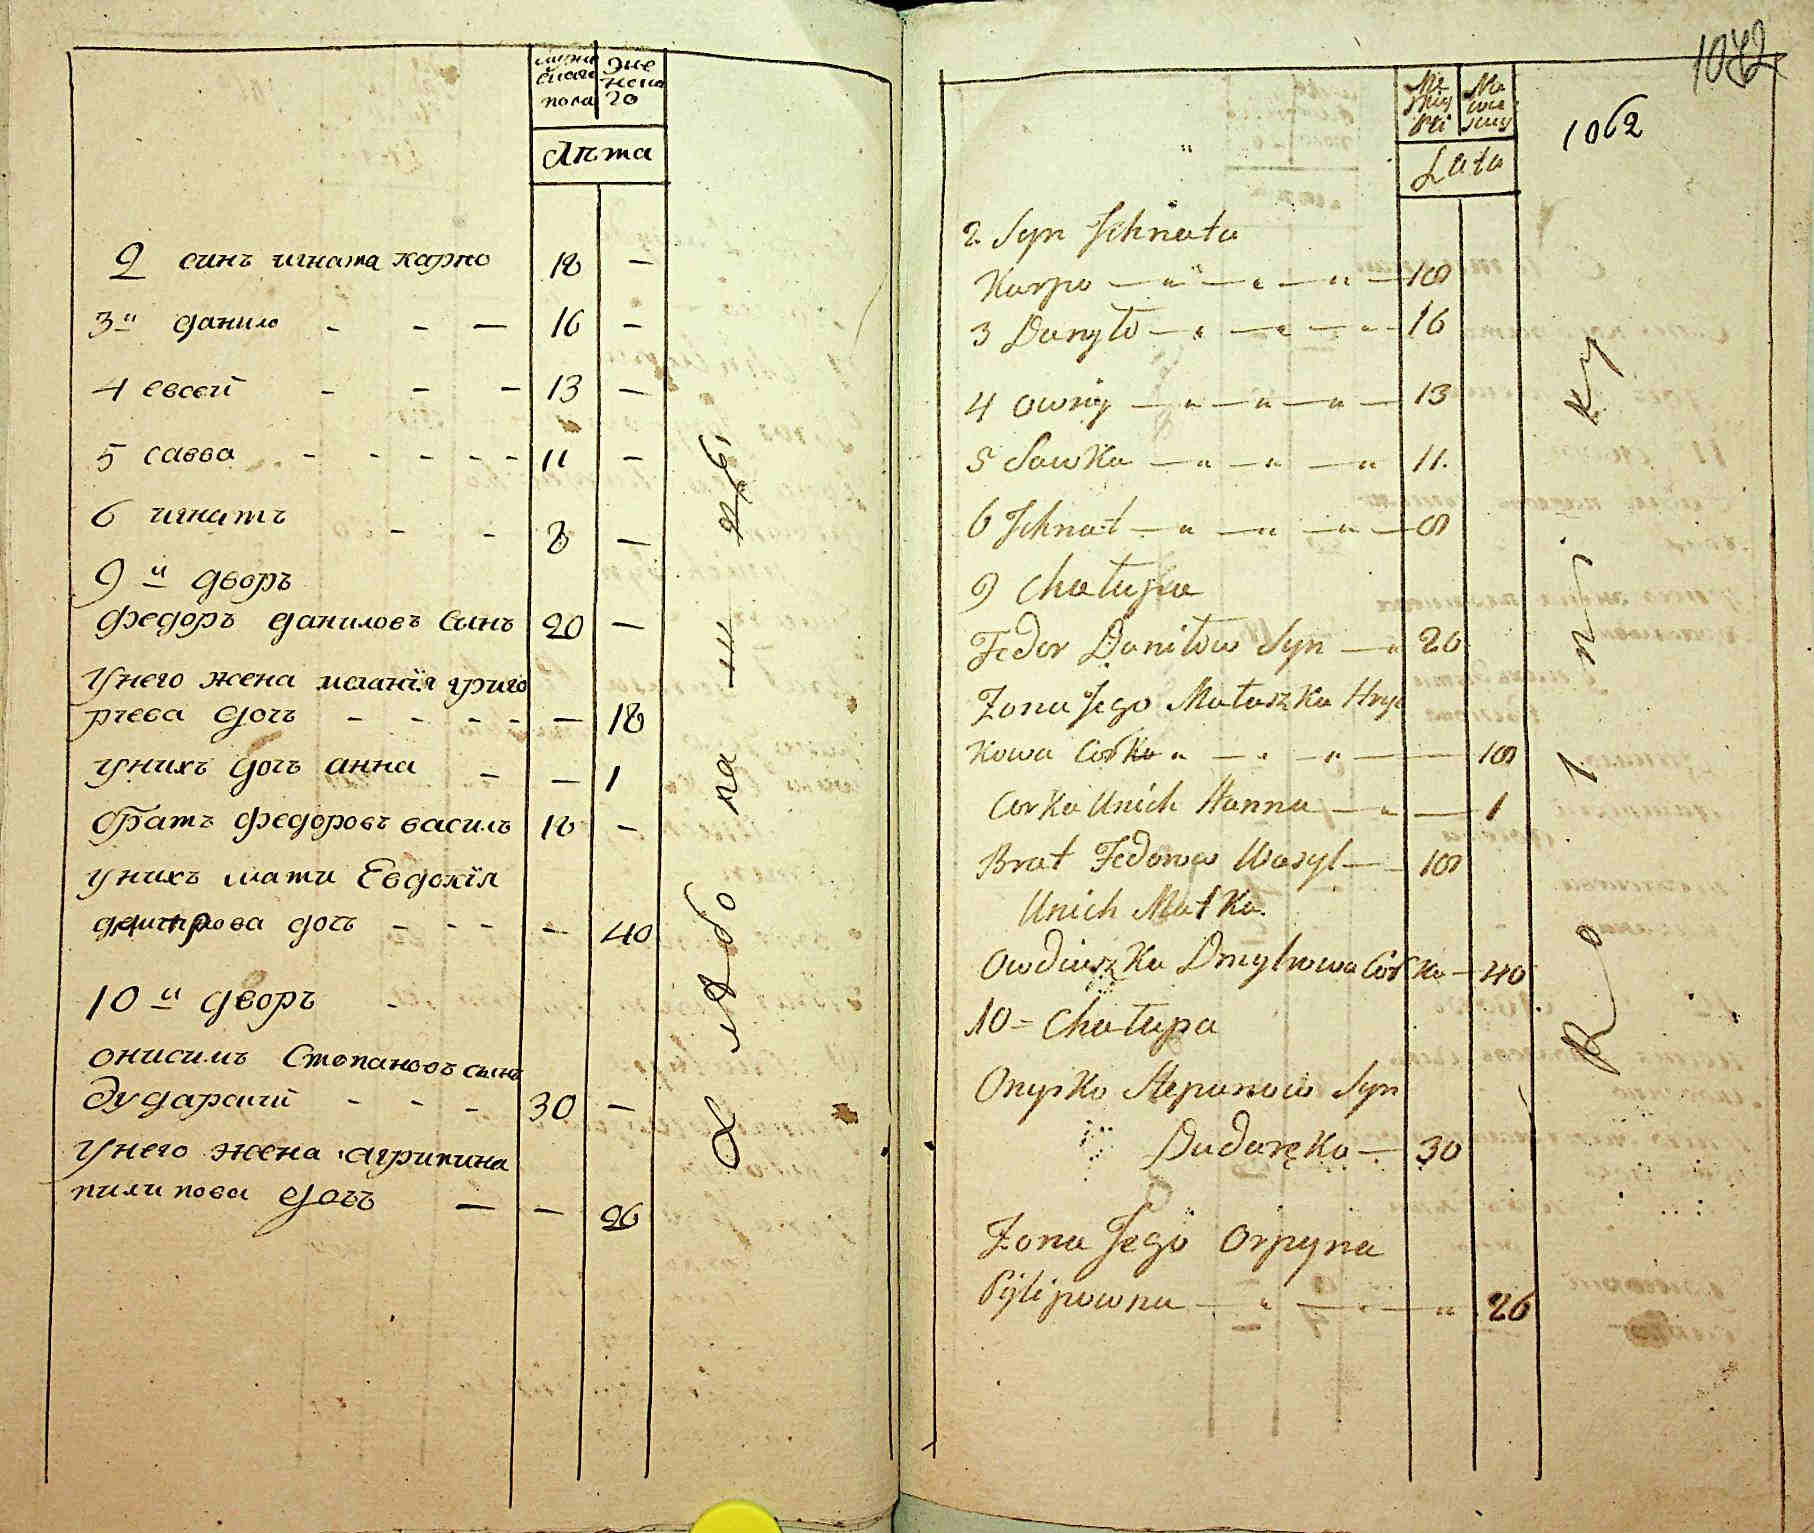 мужескаго пола
женскаго
Лѣта
2 синъ игната карпо 18 —
3й данило - - — 16 —
4 евсей - - — 13 —
5 савва - - - - - 11 —
6 игнатъ - - 8 —
9й дворъ
федоръ даниловъ синъ 20 —
унего жена маланія григо
риева дочь - - - - — 18
унихъ дочь анна — — 1
братъ федоровъ василь 18 —
унихъ мати Евдокія
дмитрова дочь - - - — 40
10й дворъ -
онисимъ Степановъ синъ
дударский - - - 30 —
унего жена агрипина
пилипова дочь — — 26
1062
Mę
skiey
płci
Lata
1062
2. Syn Jchnata
Karpo 18
3 Danyło 16
4 Owsiy 13
5 Sawka 11.
6 Jchnat 8
9 Chałupa
Fedor Daniłow Syn 20
Zona Jego Małaszka Hryć
kowa Corka 18
Corka Unich Hanna 1
Brat Fedorow Wasyl 18
Unich Matka.
Owdiuszka Dmytrowa Córka 40
10 = Chałupa
Onysko Stepanow Syn
Dudaręko 30
Zona Jego Orpyna
Pylipowna 26